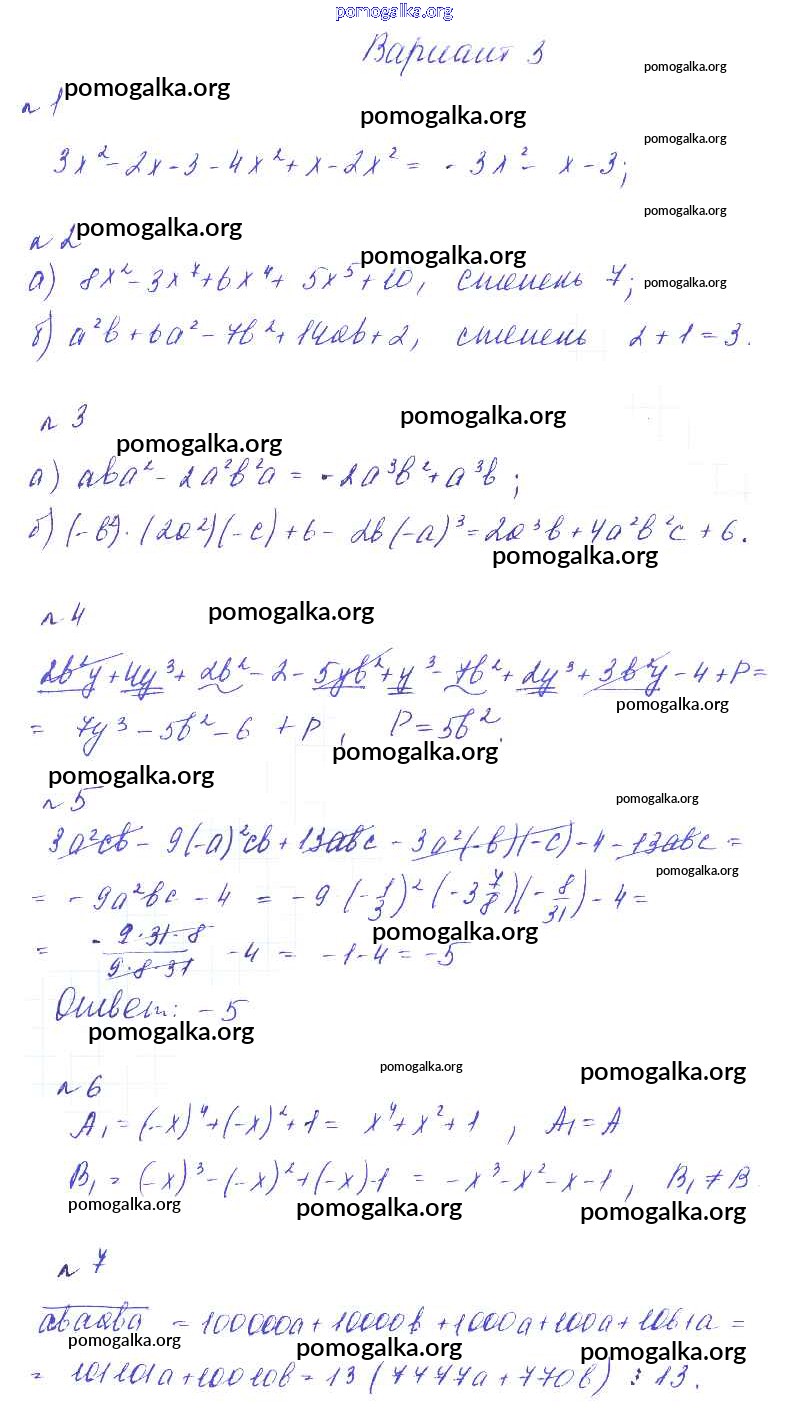 pomogalka.org
Вариант 3
pomogalka.org
№ 1 pomogalka.org
pomogalka.org
pomogalka.org
3x² - 2x - 3 - 4x² + x - 2x² = - 3x² - x - 3;
pomogalka.org
№ 2 pomogalka.org
pomogalka.org
а) 8x² - 3x⁷ + 6x⁴ + 5x⁵ + 10, степень 7; pomogalka.org
б) a²b + 6a² - 7b² + 14ab + 2, степень 2 + 1 = 3.
№ 3
pomogalka.org
pomogalka.org
а) aba² - 2a²b²a = - 2a³b² + a³b;
б) (-b²)·(2a²)(-c) + 6 - 2b(-a)³ = 2a³b + 4a²b²c + 6.
pomogalka.org
№ 4
pomogalka.org
2b²y + 4y³ + 2b² - 2 - 5yb² + y³ - 7b² + 2y³ + 3b²y - 4 + P =
pomogalka.org
= 7y³ - 5b² - 6 + P, P = 5b².
pomogalka.org
pomogalka.org
№ 5
pomogalka.org
3a²cb - 9(-a)²cb + 13abc - 3a²(-b)(-c) - 4 - 13abc =
pomogalka.org
= - 9a²bc - 4 = - 9 (-1/3)² (-3 7/8)(-8/31) - 4 =
pomogalka.org
= - 9·31·8 / 9·8·31 - 4 = - 1 - 4 = - 5
Ответ: - 5
pomogalka.org
pomogalka.org
pomogalka.org
№ 6
A₁ = (-x)⁴ + (-x)² + 1 = x⁴ + x² + 1, A₁ = A
B₁ = (-x)³ - (-x)² + (-x) - 1 = - x³ - x² - x - 1, B₁ ≠ B
pomogalka.org
pomogalka.org
pomogalka.org
№ 7
abaaba = 100000a + 10000b + 1000a + 100a + 10b + a =
pomogalka.org
pomogalka.org
pomogalka.org
= 101101a + 10010b = 13 (7777a + 770b) ⋮ 13.